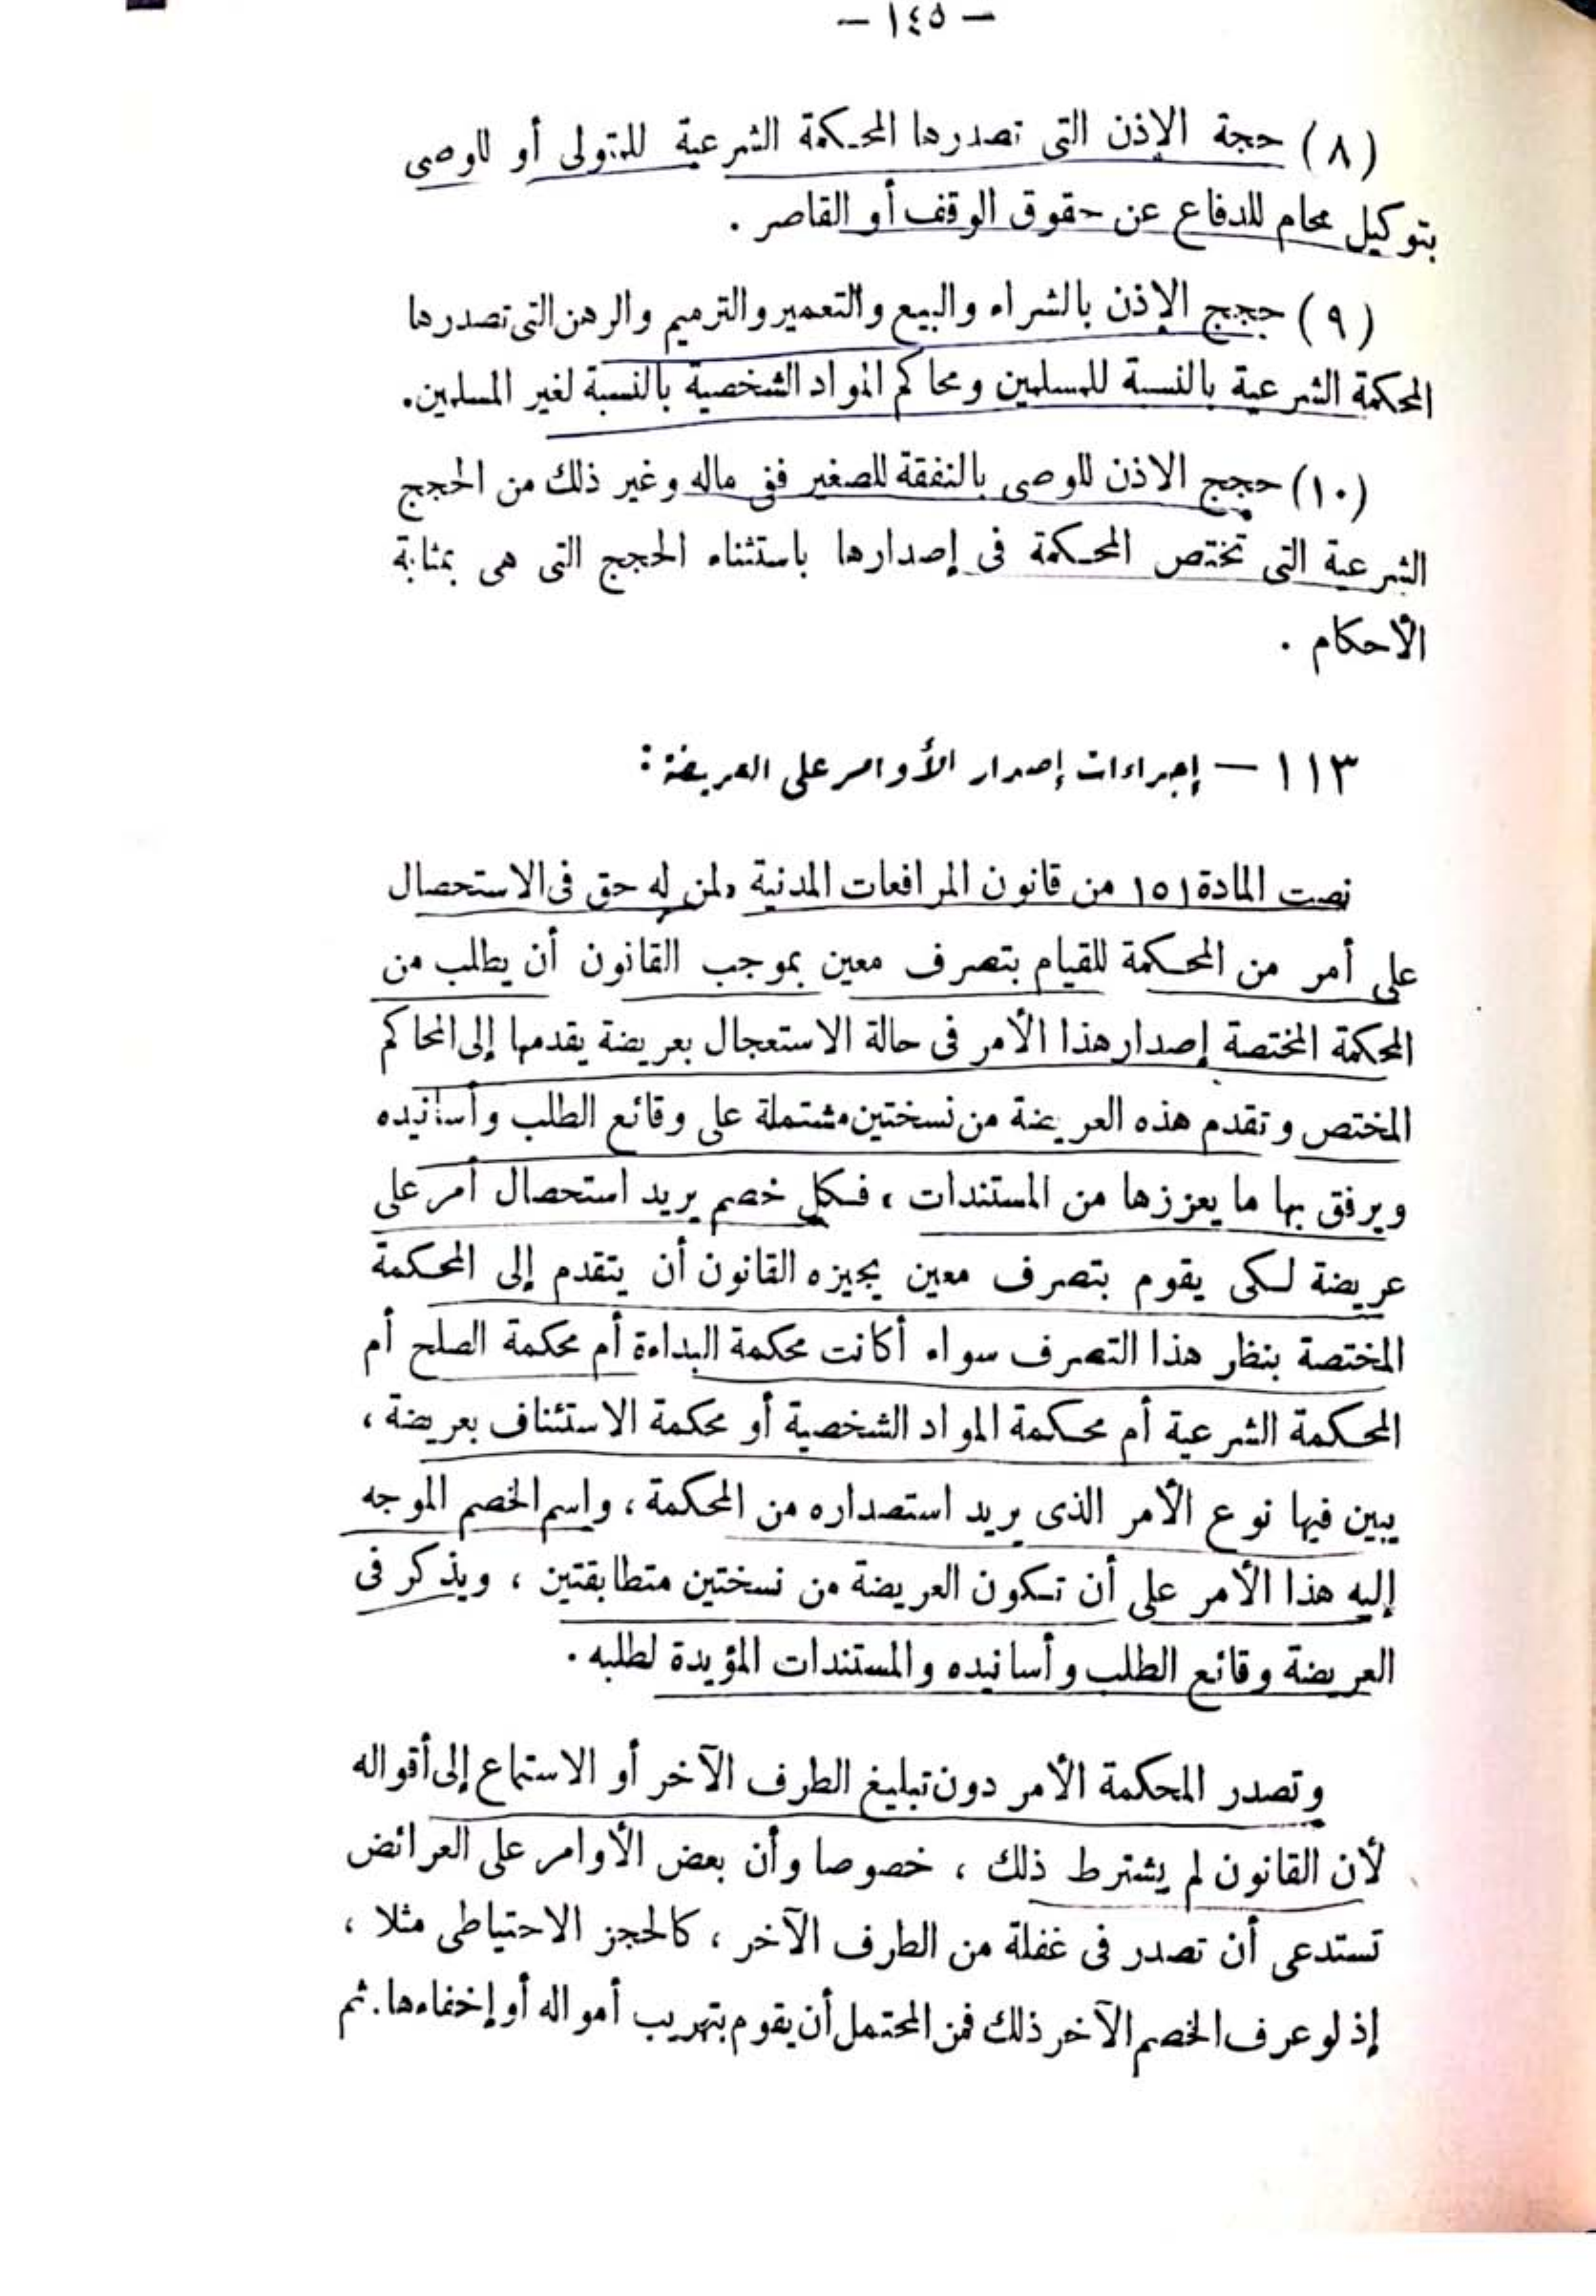 — ١٤٥ —
(٨) حجة الإذن التى تصدرها المحكمة الشرعية للمتولى أو للوصى
بتوكيل محام للدفاع عن حقوق الوقف أو القاصر .
(٩) حجج الإذن بالشراء والبيع والتعمير والترميم والرهن التى تصدرها
المحكمة الشرعية بالنسبة للمسلمين ومحاكم المواد الشخصية بالنسبة لغير المسلمين.
(١٠) حجج الاذن للوصى بالنفقة للصغير ففى ماله وغير ذلك من الحجج
الشرعية التى تختص المحكمة فى إصدارها باستثناء الحجج التى هى بمثابة
الأحكام .
١١٣ — إجراءات إصدار الأوامر على العريضة :
نصت المادة ١٥١ من قانون المرافعات المدنية «لمن له حق فى الاستحصال
على أمر من المحكمة للقيام بتصرف معين بموجب القانون أن يطلب من
المحكمة المختصة إصدار هذا الأمر فى حالة الاستعجال بعريضة يقدمها إلى المحاكم
المختص وتقدم هذه العريضة من نسختين مشتملة على وقائع الطلب وأسانيده
ويرفق بها ما يعززها من المستندات ، فكل خصم يريد استحصال أمر على
عريضة لكى يقوم بتصرف معين يجيزه القانون أن يتقدم إلى المحكمة
المختصة بنظر هذا التصرف سواء أكانت محكمة البداءة أم محكمة الصلح أم
المحكمة الشرعية أم محكمة المواد الشخصية أو محكمة الاستئناف بعريضة ،
يبين فيها نوع الأمر الذى يريد استصداره من المحكمة ، واسم الخصم الموجه
إليه هذا الأمر على أن تكون العريضة من نسختين متطابقتين ، ويذكر فى
العريضة وقائع الطلب وأسانيده والمستندات المؤيدة لطلبه .
وتصدر المحكمة الأمر دون تبليغ الطرف الآخر أو الاستماع إلى أقواله
لأن القانون لم يشترط ذلك ، خصوصا وأن بعض الأوامر على العرائض
تستدعى أن تصدر فى غفلة من الطرف الآخر ، كالحجز الاحتياطى مثلا ،
إذ لو عرف الخصم الآخر ذلك فمن المحتمل أن يقوم بتهريب أمواله أو إخفاءها. ثم